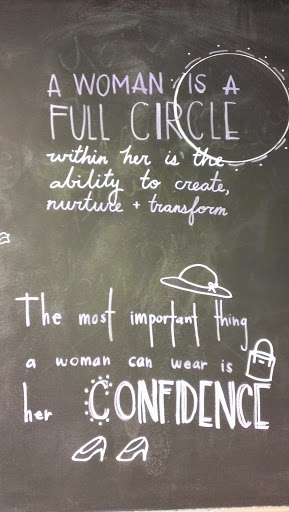 A WOMAN IS A
FULL CIRCLE
within her is the
ability to create,
nurture + transform
The most important thing
a woman can wear is
her CONFIDENCE